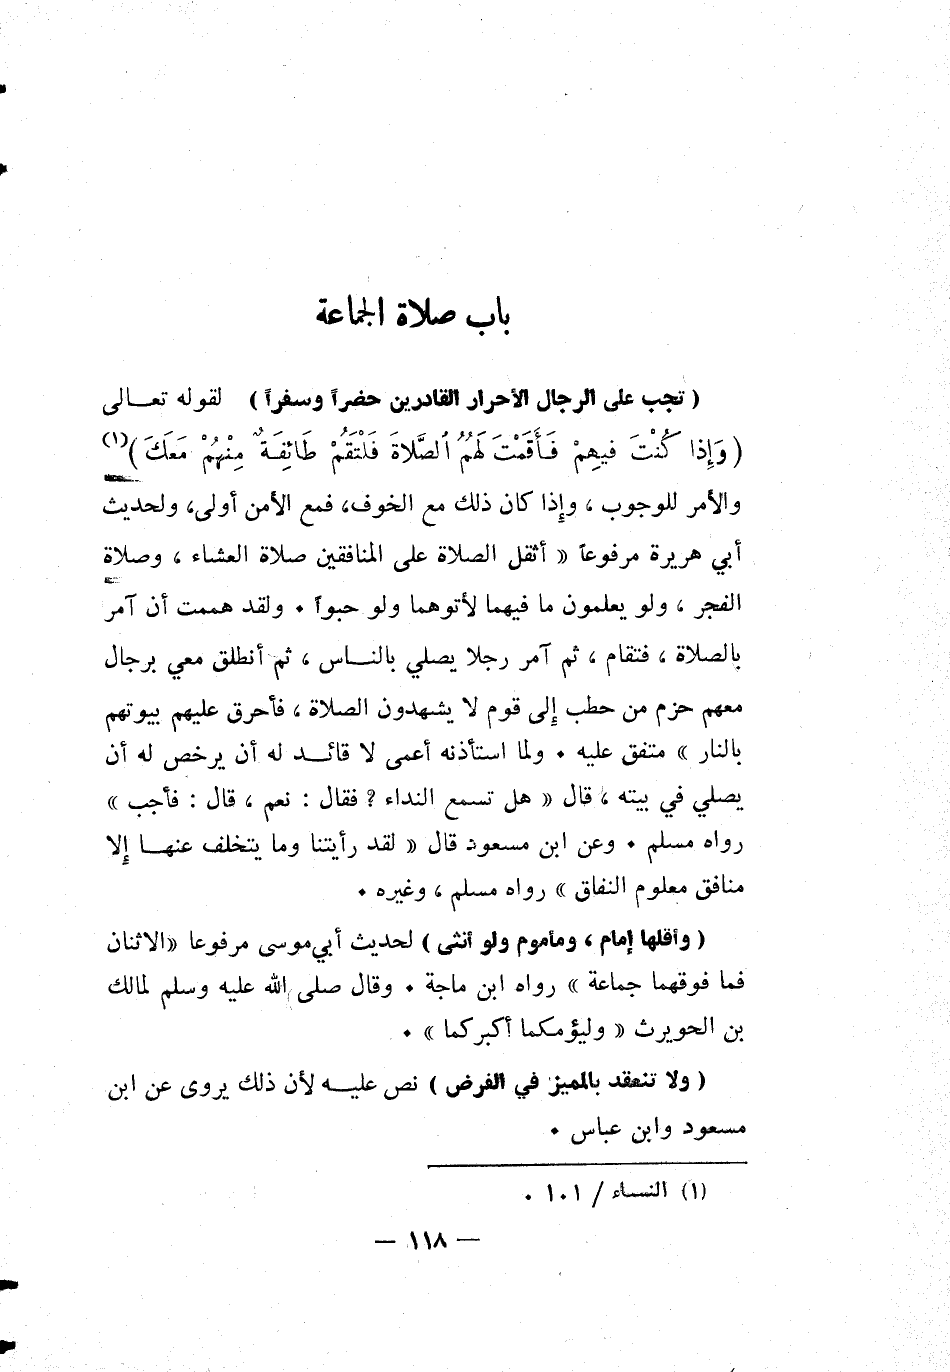 باب صلاة الجماعة
( تجب على الرجال الأحرار القادرين حضراً وسفراً ) لقوله تعـالى
( وَإِذَا كُنْتَ فِيهِمْ فَأَقَمْتَ لَهُمُ ٱلصَّلَاةَ فَلْتَقُمْ طَائِفَةٌ مِنْهُمْ مَعَكَ )(١)
والأمر للوجوب ، وإذا كان ذلك مع الخوف، فمع الأمن أولى، ولحديث
أبي هريرة مرفوعاً « أثقل الصلاة على المنافقين صلاة العشاء ، وصلاة
الفجر ، ولو يعلمون ما فيهما لأتوهما ولو حبواً ٠ ولقد هممت أن آمر
بالصلاة ، فتقام ، ثم آمر رجلا يصلي بالنـاس ، ثم أنطلق معي برجال
معهم حزم من حطب إلى قوم لا يشهدون الصلاة ، فأحرق عليهم بيوتهم
بالنار » متفق عليه ٠ ولما استأذنه أعمى لا قائـد له أن يرخص له أن
يصلي في بيته ، قال « هل تسمع النداء ? فقال : نعم ، قال : فأجب »
رواه مسلم ٠ وعن ابن مسعود قال « لقد رأيتنا وما يتخلف عنهـا إلا
منافق معلوم النفاق » رواه مسلم ، وغيره ٠
( وأقلها إمام ، ومأموم ولو أنثى ) لحديث أبي موسى مرفوعا «الاثنان
فما فوقهما جماعة » رواه ابن ماجة ٠ وقال صلى الله عليه وسلم لمالك
بن الحويرث « وليؤمكما أكبركما » ٠
( ولا تنعقد بالمميز في الفرض ) نص عليـه لأن ذلك يروى عن ابن
مسعود وابن عباس ٠
(١) النساء / ١٠١ ٠
— ١١٨ —